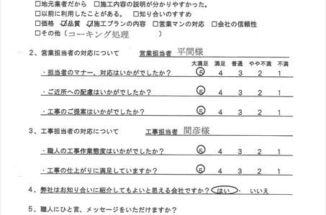 □地元業者だから　□施工内容の説明が分かりやすかった。
□以前に利用したことがある。　□知り合いのすすめ
□価格　☑品質　☑施工プランの内容　□営業マンの対応　□会社の信頼性
□その他（コーキング処理　）
2、営業担当者の対応について　営業担当者　平間様
大満足　満足　普通　やや不満　不満
・担当者のマナー、対応はいかがでしたか？　5　4　3　2　1
・ご近所への配慮はいかがでしたか？　5　4　3　2　1
・工事のご提案はいかがでしたか？　5　4　3　2　1
3、工事担当者の対応について　工事担当者　間彦様
・職人の工事作業態度はいかがでしたか？　5　4　3　2　1
・工事の仕上がりに満足していますか？　5　4　3　2　1
4、弊社はお知り合いに紹介してもよいと思える会社ですか？　はい　・　いいえ
5、職人にひと言、メッセージをいただけますか？